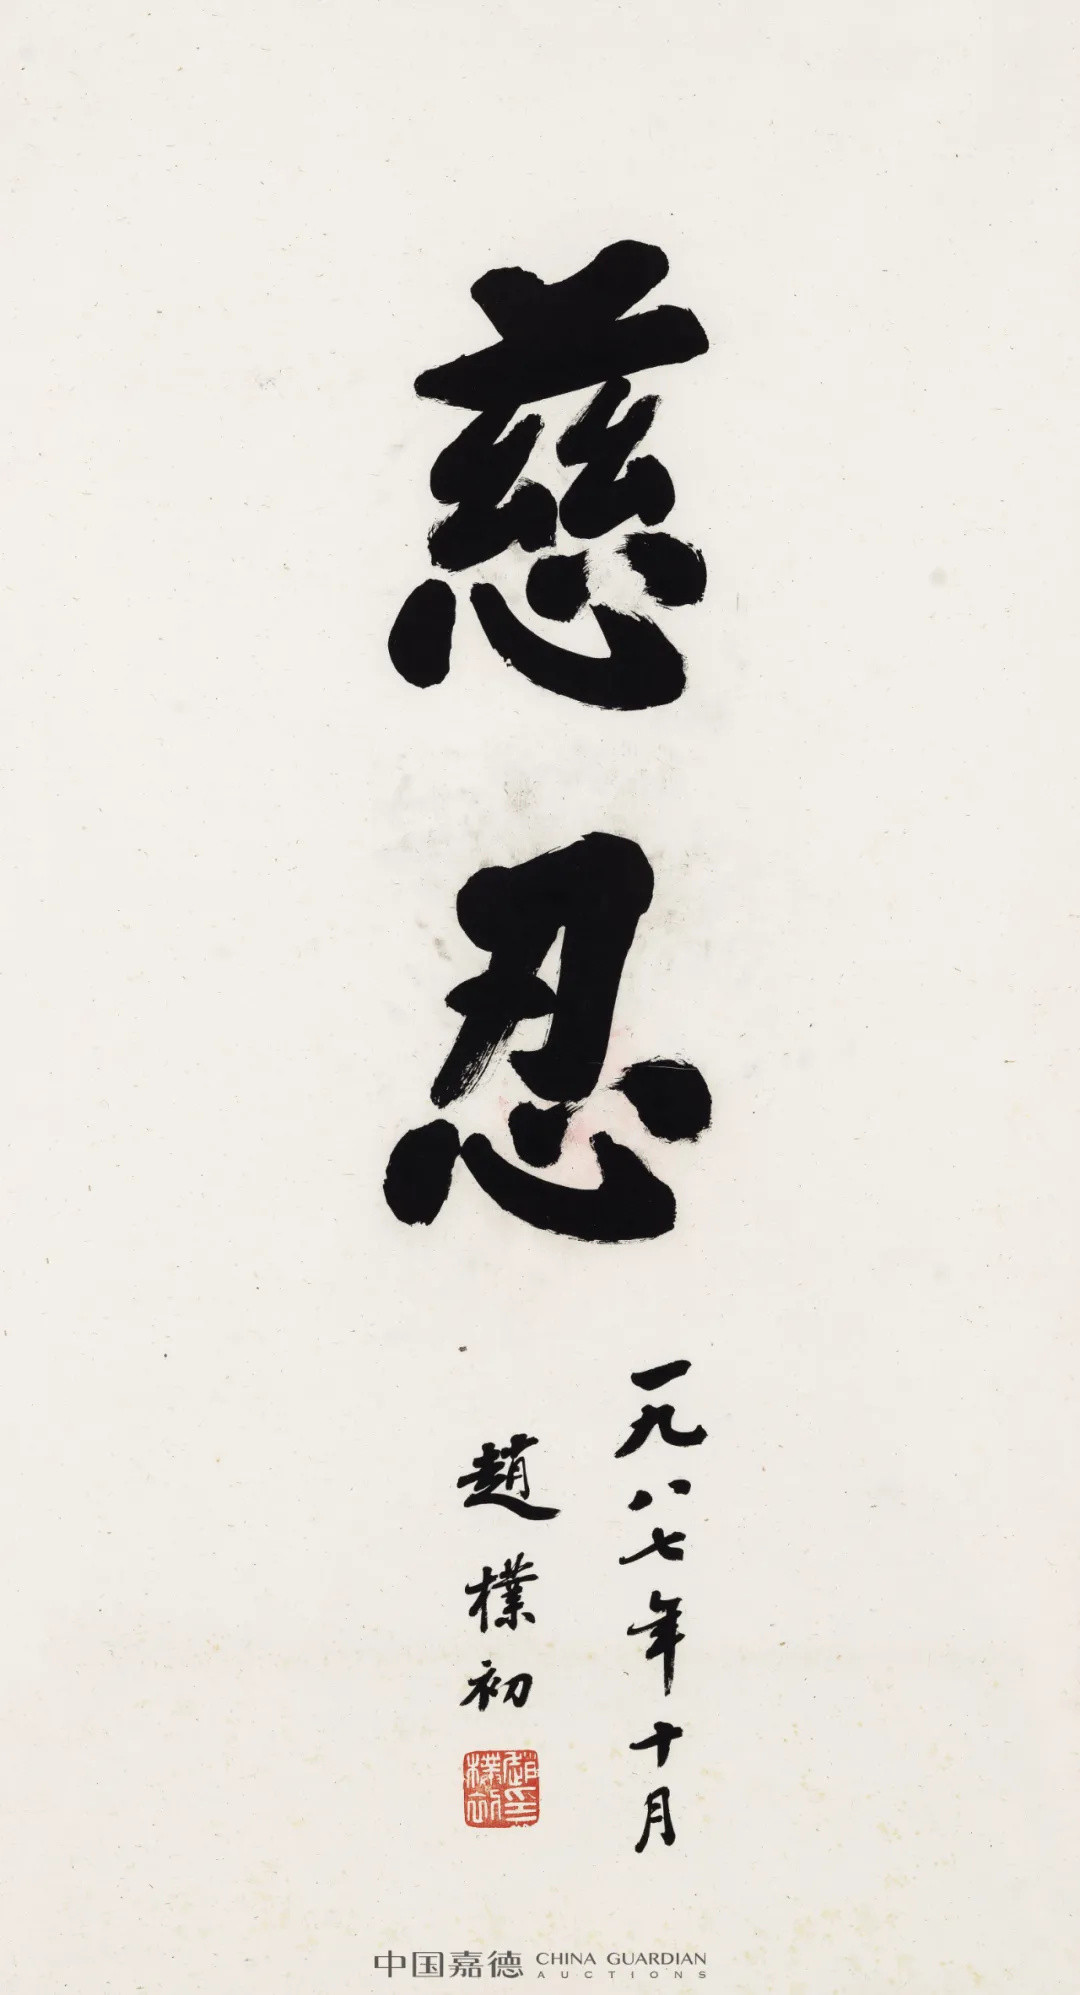 慈忍
一九八七年十月
趙樸初
趙樸初印
中国嘉德 CHINA GUARDIAN
AUCTIONS